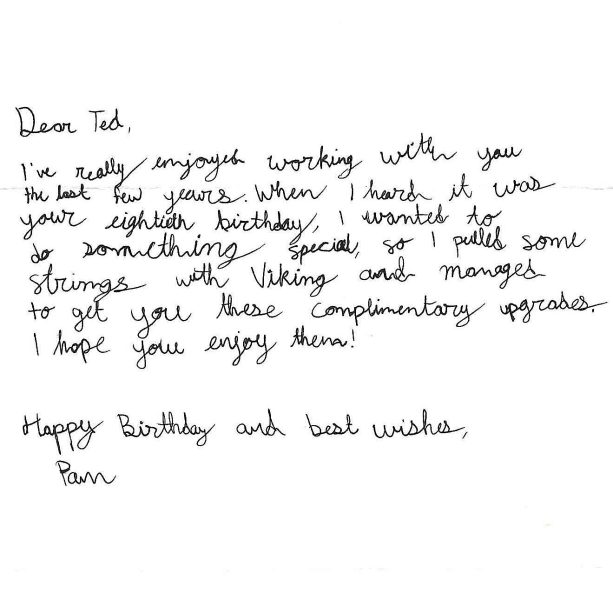 Dear Ted,
I've really enjoyed working with you
the last few years. When I heard it was
your eightieth birthday, I wanted to
do something special, so I pulled some
strings with Viking and managed
to get you these complimentary upgrades.
I hope you enjoy them!
Happy Birthday and best wishes,
Pam